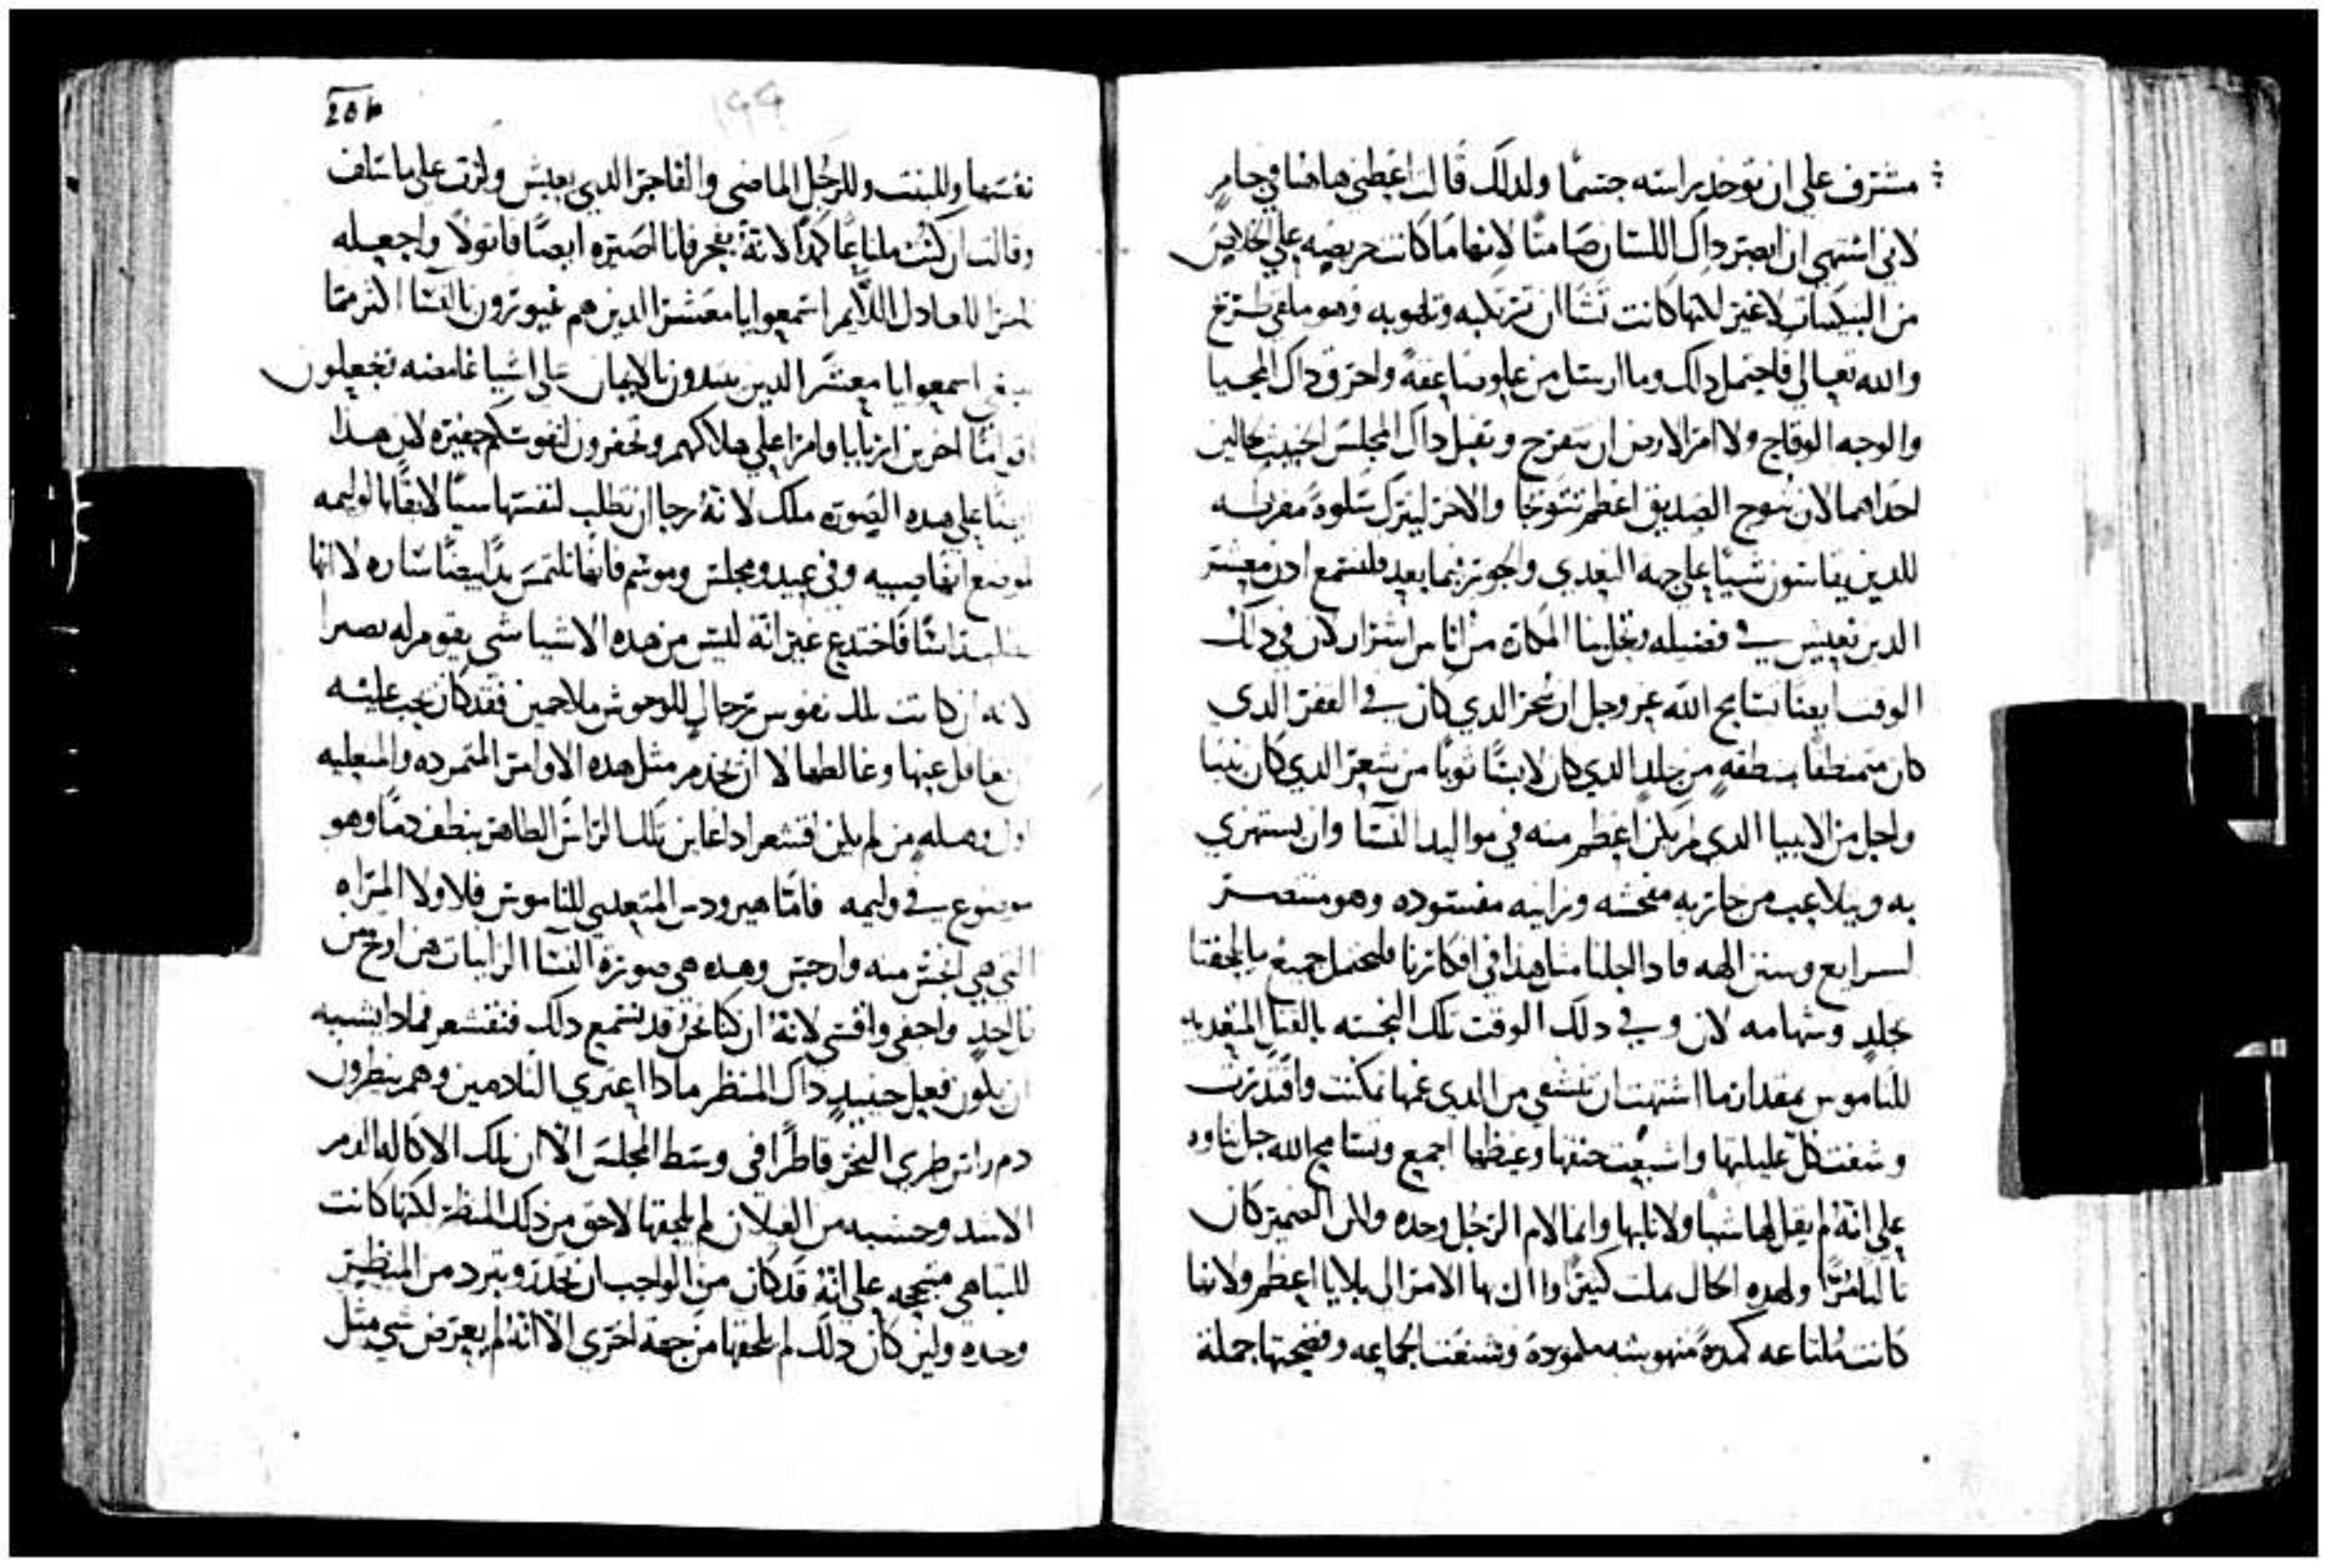 مشرف علي ان توخد براسته جسما ولدلك قالت اعطني هاهنا في جام
لاني اشتهي ان ابصر داك اللسان صامتا لانها ما كانت حريصه علي الخلاص
من التبكيتات لا غير لكنها كانت تشا ان تركبه وتلهو به وهو ملقي طريح
والله تعالي فاحتمل دلك وما ارسل من علو صاعقة واحرق داك المحيا
والوجه الوقاح ولا امر الارض ان تنفرج وتقبل داك المجلس الخبيث لحالين
احداهما لان يتوج الصديق اعظم تتويجا والاخر ليترك سلوة مفرطه
للدين يقاسون شيا علي جهه التعدي والجور فيما بعد فلنسمع ادن معشر
الدين نعيش في فضيله وتحل بنا المكاره من اناس اشرار لان في دلك
الوقت ايضا تسامح الله عز وجل ان نحر الدي كان في القفر الدي
كان متمنطقا بمنطقه من جلد الدي كان لابسا ثوبا من شعر الدي كان نبيا
واجل من الانبيا الدي لم يكن اعظم منه في مواليد النسا وان يستهزي
به ويتلاعب من جاريه مفحشه وزانيه مفسوده وهو منتصر
لشرايع وسنن الهه فاد اجلنا مثل هذا في افكارنا فلنحتمل جميع ما يلحقنا
بجلد وشهامه لان وفي دلك الوقت تلك النجسه بالقتل المتعديه
للناموس بمقدار ما اشتهت ان تشفي من الدي غمها تمكنت واقتدرت
وشفت كل غليلها واشبعت حنقها وغيظها اجمع وتسامح الله جل ثناوه
علي انه لم يقل لها شيا ولا ثلبها وانما لام الرجل وحده والان الضمير كان
ثالبا مرا ولهده الحال عملت كثيرا واال بها الامر الي بلايا اعظم ولانها
كانت ملتاعه كمدة منهوشه ملموده وشنعت الجماعه وفضحتها جملة
201
199
نفسها وللبنت وللرجل الماضي والفاجر الدي يعيش ولزت علي ما سلف
وقالت ان كنت ملتاعا كمدا لانه يفجر فانا اصيره ايضا قاتولا واجعله
العادل اللايم اسمعوا يا معشر الدين هم غيورون بالنسا اكثر مما
ينبغي اسمعوا يا معشر الدين يبدون الايمان علي اشيا غامضه تجعلون
اقواما اخرين اربابا وامرا علي هلاككم وتحفرون لنفوسكم حفيره لان هذا
ايضا علي هده الصوره هلك لانه رجا ان تطلب لنفسها شيا لايقا بالوليمه
لموضع انها صبيه وفي عيد ومجلس وموسم فانها تلتمس يدا بيضا ساره لا انها
تطلب راسا فاختدع غير انه ليس من هده الاشيا شي يقوم له نصيرا
لانه ان كانت تلك نفوس رجال للوحوش ملاحمين فقد كان يجب عليه
ان يتغافل عنها وغالطها لا ان يخدم مثل هده الاوامر المتمرده والمتعليه
اول وهله من لم يكن اقشعر ادا عاين تلك الراس الطاهر ينطف دما وهو
موضوع في وليمه فاما هيرودس المتعدي للناموس فلا ولا المراه
التي هي افحش منه وارجس وهده هي صورة النسا الزانيات هن اوقح من
كل احد واجفي واقسي لانه ان كنا نحن قد نسمع دلك فنقشعر فمادا يشبه
ان يكون فعل حينيد داك المنظر مادا اعتري النادمين وهم ينظرون
دم راس طري النحر قاطرا في وسط المجلس الا ان تلك الاكاله الدم
الاسد وحشيه من الغيلان لم يلحقها لاحق من دلك المنظر لكنها كانت
للتباهي متبجحه علي انه قد كان من الواجب ان تخدر وتبرد من المنظر
وحده ولين كان دلك لم يلحقها من جهة اخري الا انه لم يعترض شي مثل